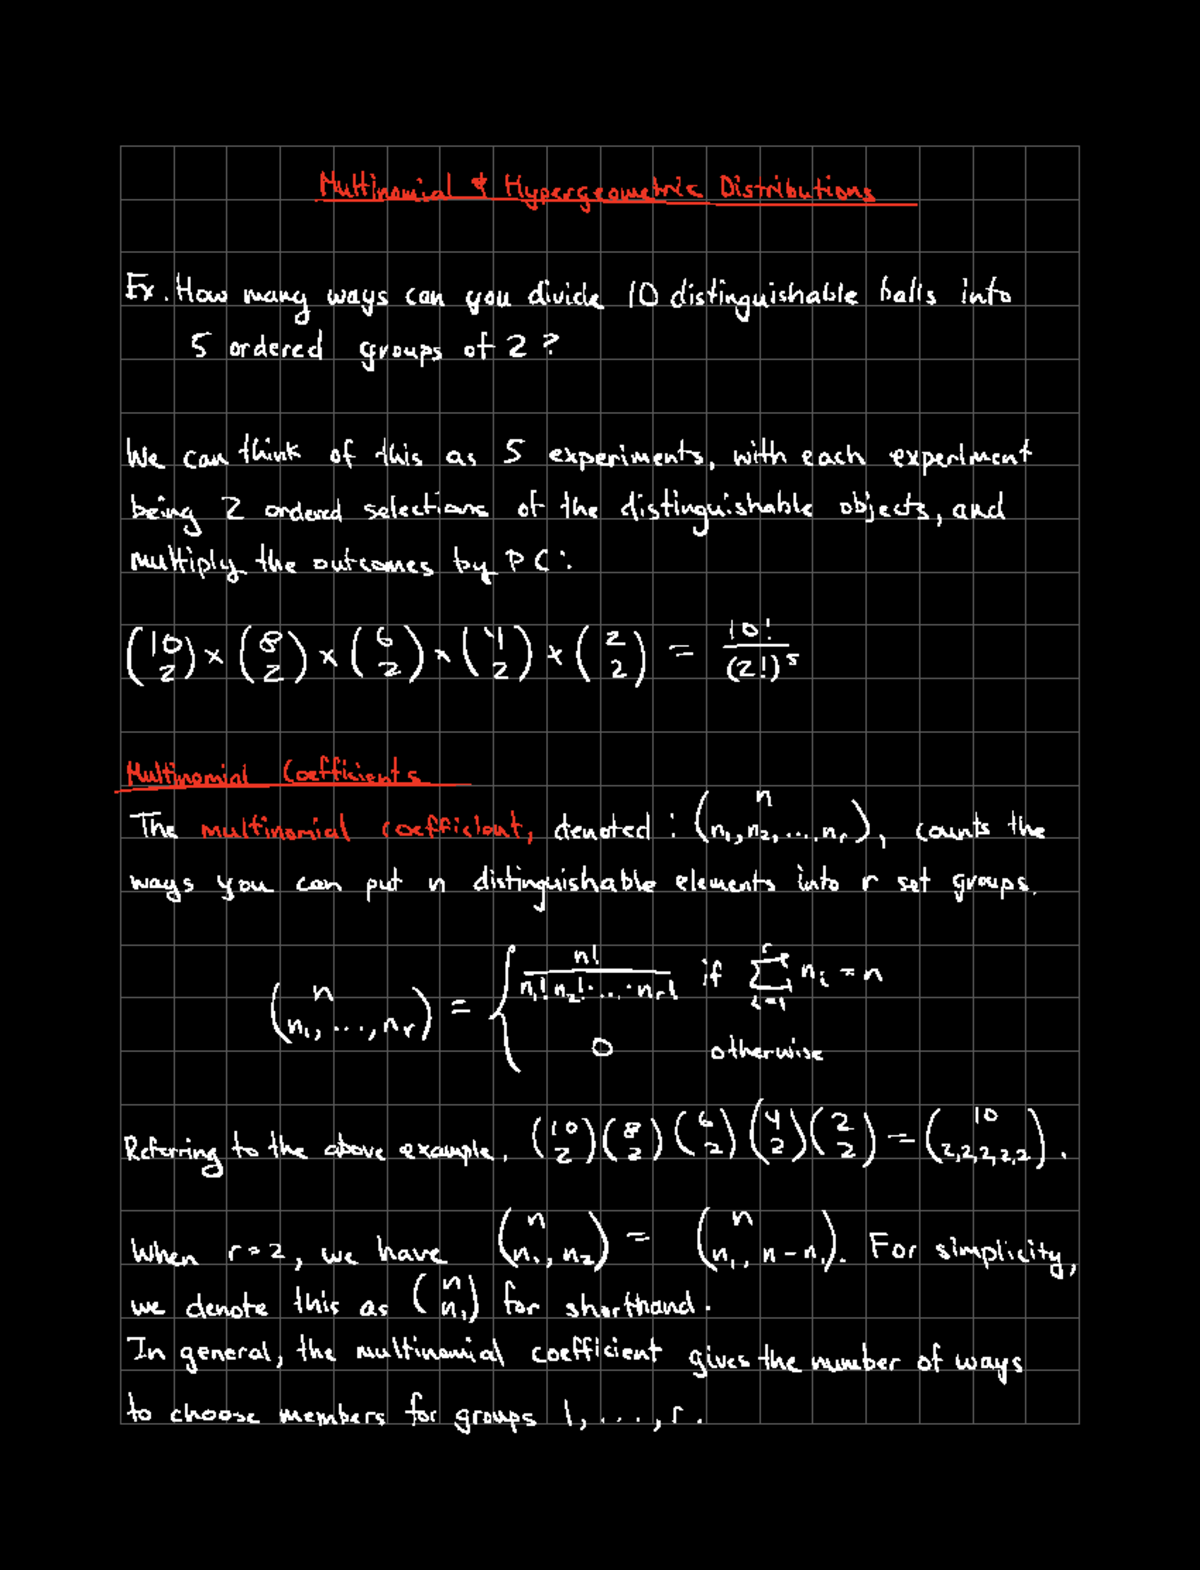 Multinomial & Hypergeometric Distributions
Ex. How many ways can you divide 10 distinguishable balls into
5 ordered groups of 2 ?
We can think of this as 5 experiments, with each experiment
being 2 ordered selections of the distinguishable objects, and
multiply the outcomes by PC:
(10 2) × (8 2) × (6 2) × (4 2) × (2 2) = 10! / (2!)^5
Multinomial Coefficients
The multinomial coefficient, denoted : (n n₁, n₂, ..., nᵣ), counts the
ways you can put n distinguishable elements into r set groups.
(n n₁, ..., nᵣ) = { n! / n₁! n₂! · ... · nᵣ! if Σ_{i=1}^{r} nᵢ = n
0 otherwise
Referring to the above example, (10 2)(8 2)(6 2)(4 2)(2 2) = (10 2,2,2,2,2).
When r=2, we have (n n₁, n₂) = (n n₁, n-n₁). For simplicity,
we denote this as (n n₁) for shorthand.
In general, the multinomial coefficient gives the number of ways
to choose members for groups 1, ..., r.